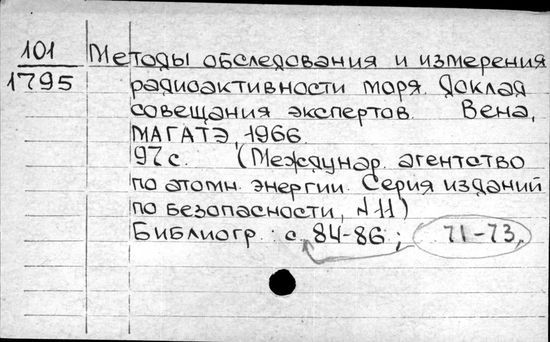 101
1795
Методы обследования и измерения
радиоактивности моря. Доклад
совещания экспертов. Вена,
МАГАТЭ, 1966.
97 с. (Междунар. агентство
по атомн. энергии. Серия изданий
по безопасности, N 11)
Библиогр.: с. 84-86; 71-73.